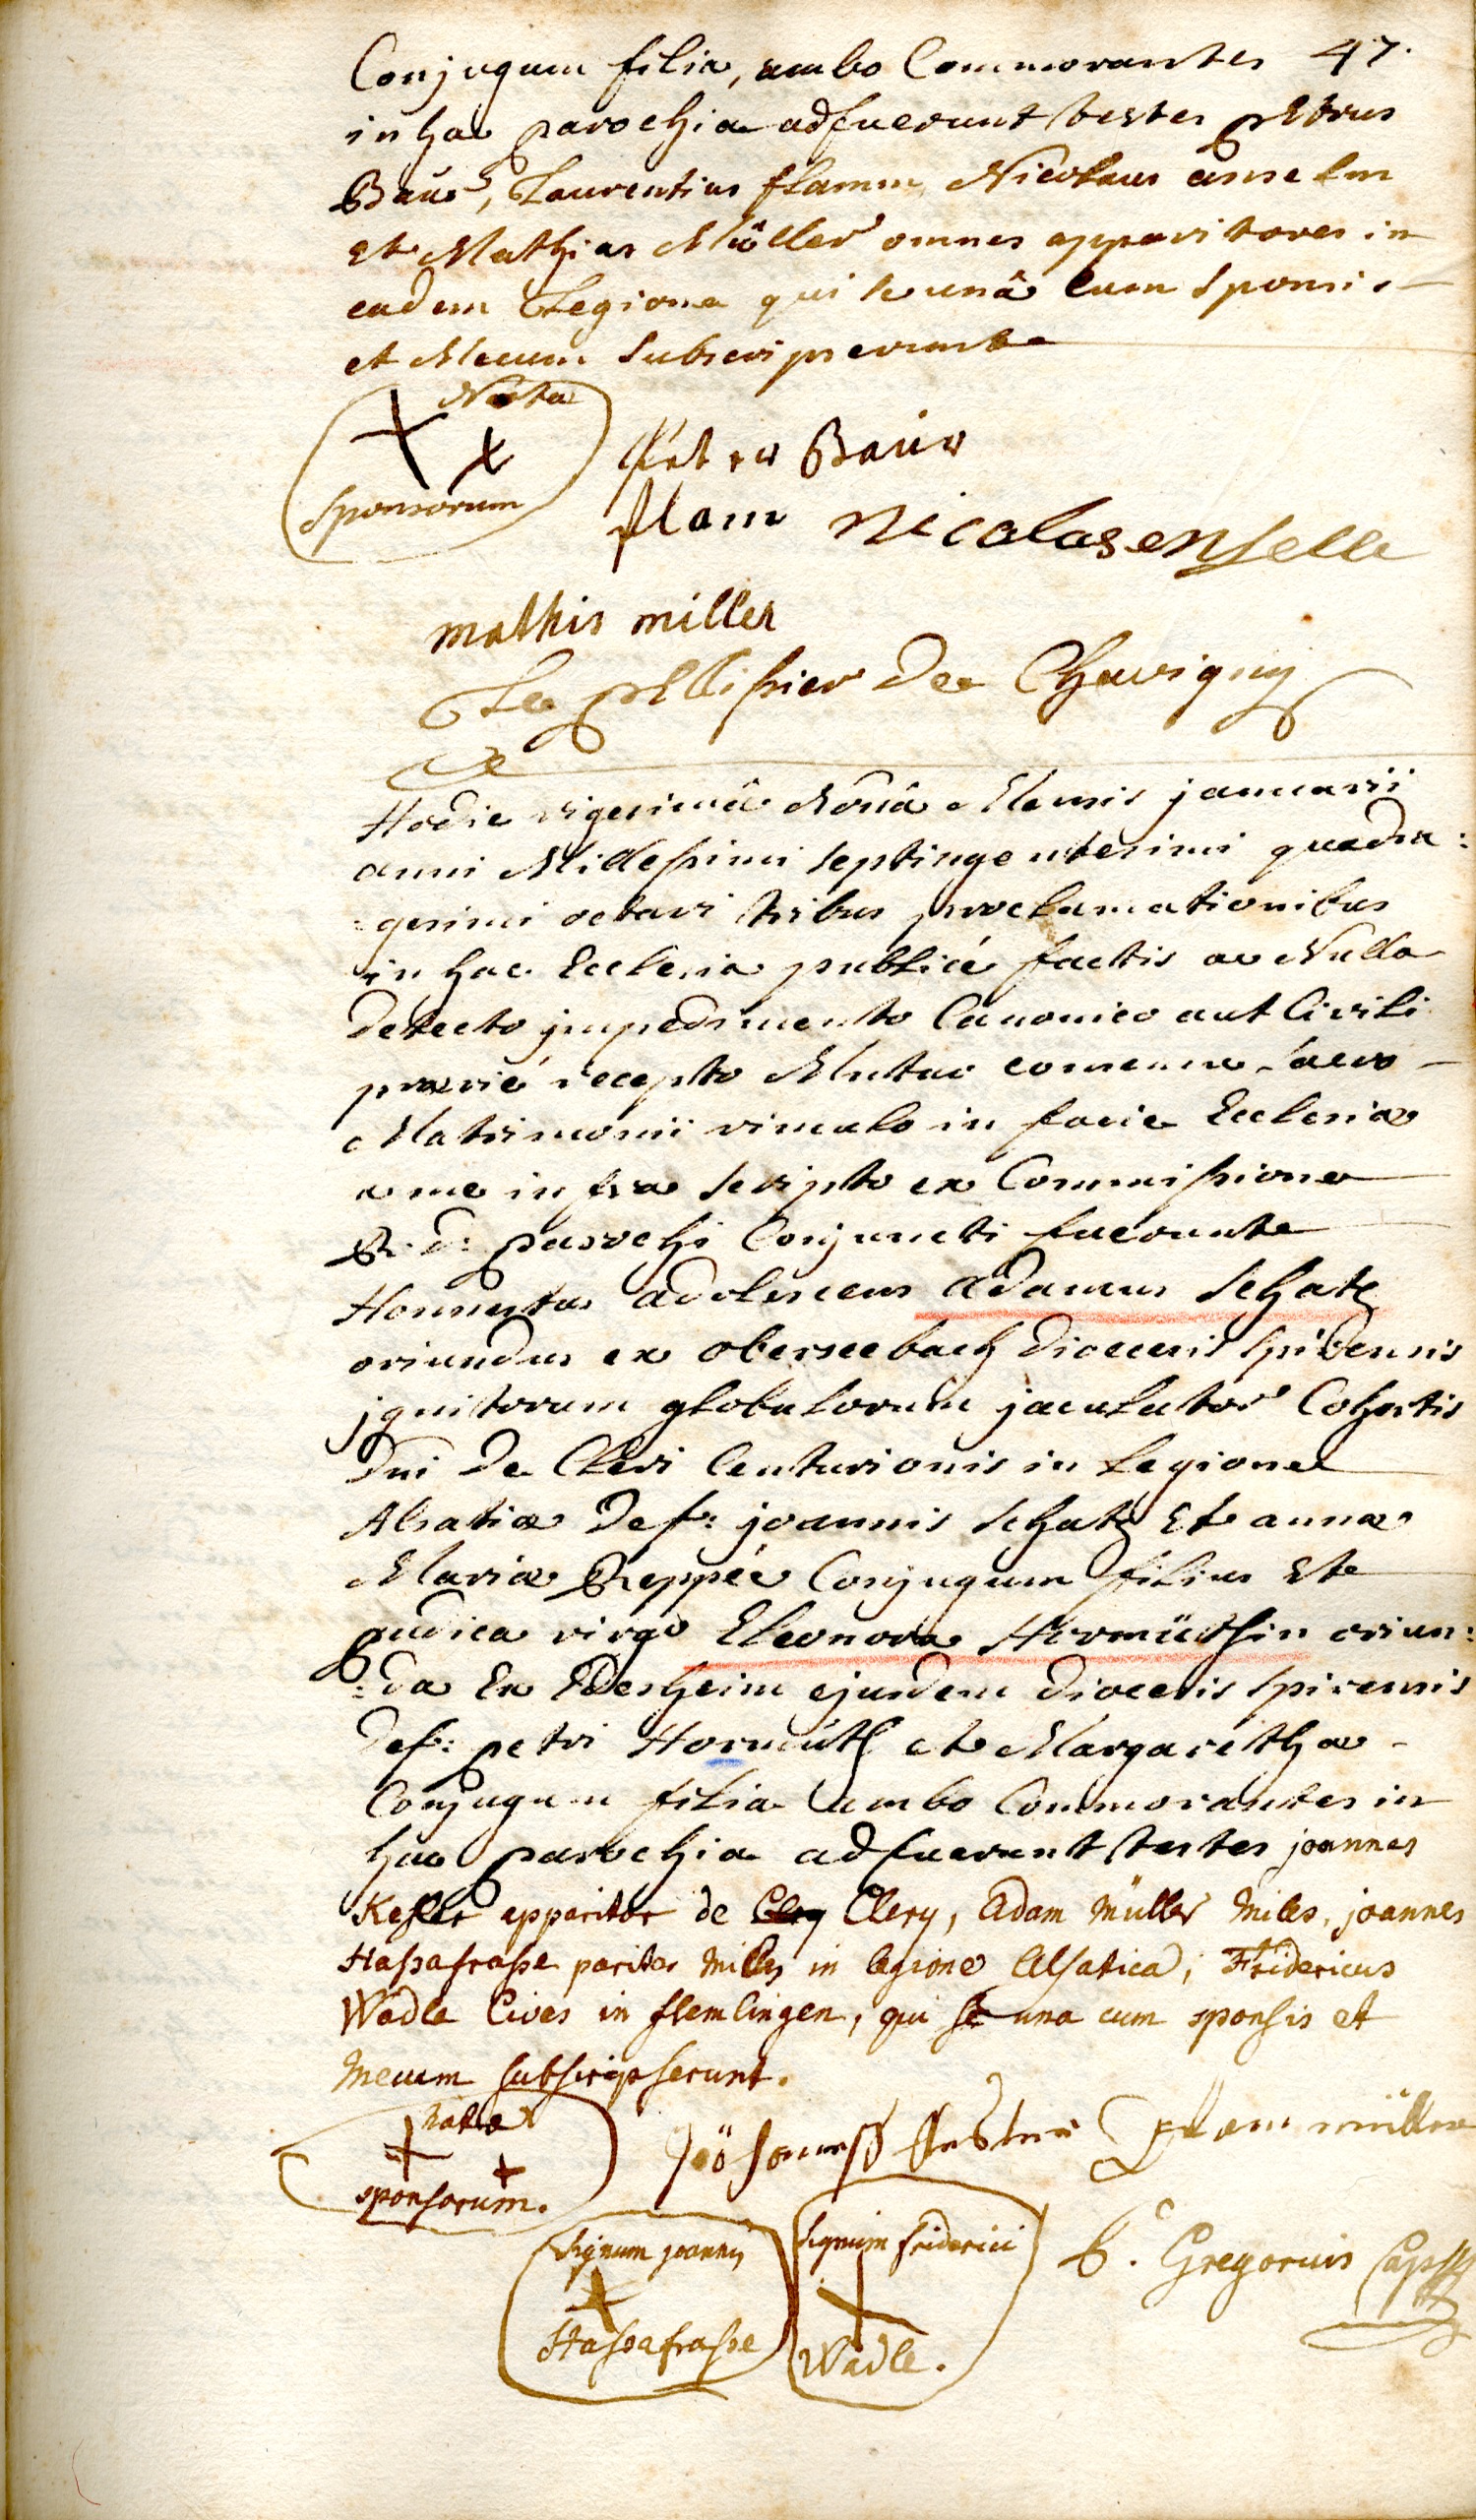 Conjugum filia, ambo Commorantes 47.
in hac parochia adfuerunt testes petrus
Baur, Laurentius flamm, Nicolaus anselm
et Mathias Müller omnes apparitores in
eadem Legione qui se unâ cum sponsis
et Mecum subscripserunt
Nota
sponsorum
Peter Baur
flam Nicolas enselle
mathis miller
Le pellissier De Chavigny
Hodie vigesimâ Nonâ Mensis januarii
anni Millessimi septingentesimi quadra:
:gesimi octavi tribus proclamationibus
in hac Ecclesia publicé factis ac Nullo
detecto jmpedimento Canonico aut Civili
praevié recepto Mutuo consensu sacro
Matrimonii vinculo in facie Ecclesiae
a me infra scripto ex Commissione
R: d: parochi Conjuncti fuerunt
Honnestus adolescens adamus Schatz
oriundus ex oberseebach dioecesis spirensis
jgnitorum globulorum jaculator Cohortis
Dni De Cleri Centurionis in Legione
Alsatiae Def: joannis Schatz Et annae
Mariae Reppée Conjugum filius Et
pudica virgo Eleonora Hormüthin oriun:
:da Ex Edesheim ejusdem dioecesis spirensis
def: petri Hormúth et Margarethae
Conjugum filia ambo Commorantes in
hac parochia adfuerunt testes joannes
Kesler apparitor de Clery Clery, Adam Müller Miles, joannes
Hassafrasse pariter Miles in legione Alsatica; Fridericus
Wadle Cives in flemlingen, qui se una cum sponsis et
Mecum subscripserunt.
nota
sponsorum.
adam müller
Signum joannis
Hassafrasse
Signum friderici
Wadle.
Gregorius